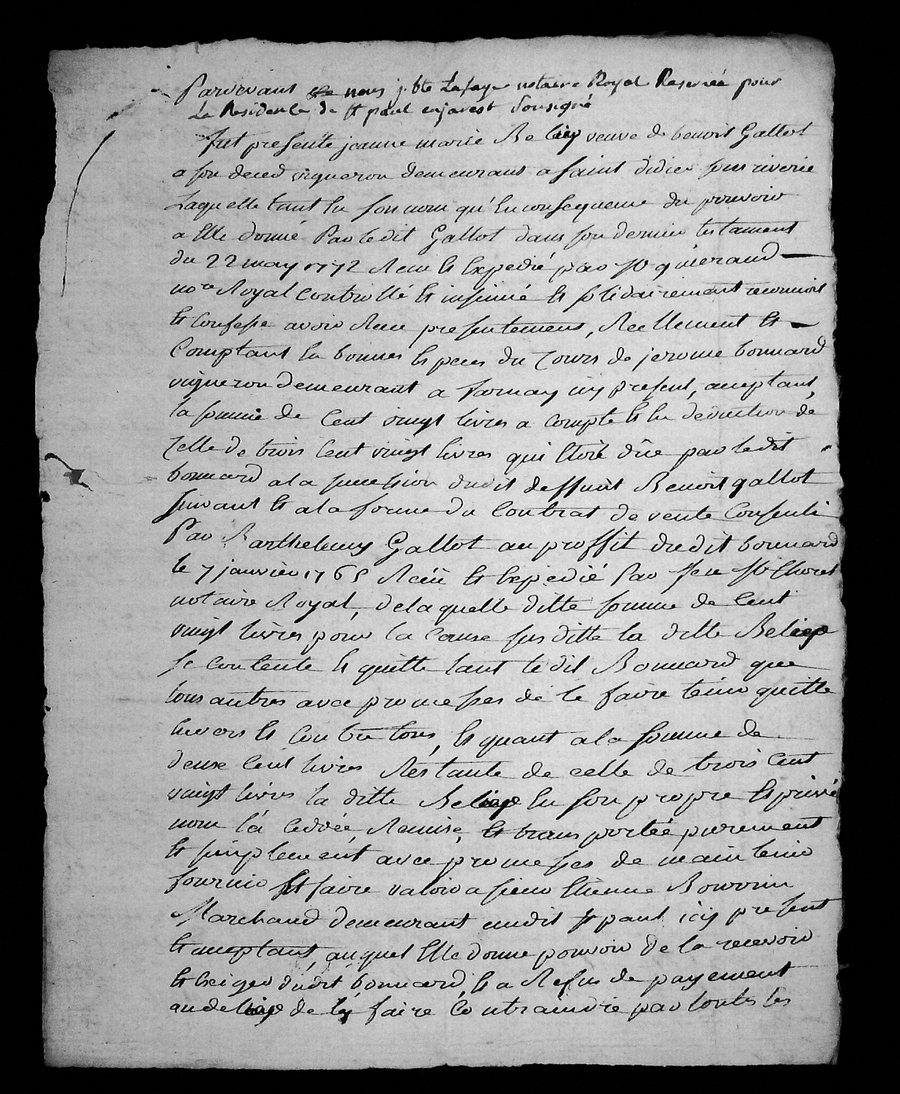 Pardevant nous j. bte Lafaye notaire Royal Reservé pour
La Residence de st paul enjarest Sousigné
fut presente jeanne marie Beliep veuve de benoit Gallot
a son deced vigneron demeurant a saint didier sous riverie
Laquelle tant En son nom qu'En consequence du pouvoir
a Elle donné Par ledit Gallot dans son dernier testament
du 22 may 1772 Receu Et Expedié par Me guierand
nore Royal Controllé Et insinué Et solidairement reconnoit
Et Confesse avoir Receu presentement, Reellement Et
Comptant En bonnes Especes du Cours de jerome bonnard
vigneron demeurant a farnay icy present, aceptant,
la somme de Cent vingt livres a Compte Et En deduction de
Celle de trois Cent vingt livres qui Etoit dûe par ledit
bonnard a la sucession dudit deffunt Benoit gallot
suivant Et a la forme du Contrat de vente Consenti
Par Barthelemy Gallot au proffit dudit bonnard
le 7 janvier 1765 Reçû Et Expedié Par feu Me
notaire Royal, de laquelle ditte somme de Cent
vingt livres pour la Cause sus ditte la ditte Beliep
se Contente Et quitte tant ledit Bonnard que
tous autres avec promesses de le faire tenir quitte
Envers Et Contre tous, Et quant a la somme de
deuse Cent livres Restante de celle de trois Cent
vingt livres la ditte Beliep En son propre Et privé
nom l'a Ceddée, Remise, Et transportée purement
Et simplement avec promesses de maintenir
fournir Et faire valoir a sieur Etienne Bouvrin
Marchand demeurant audit st paul icy present
Et aceptant, auquel Elle donne pouvoir de la recevoir
Et Exiger dudit bonnard, Et a Refus de payement
audelay de ly faire Contraindre par toutes les